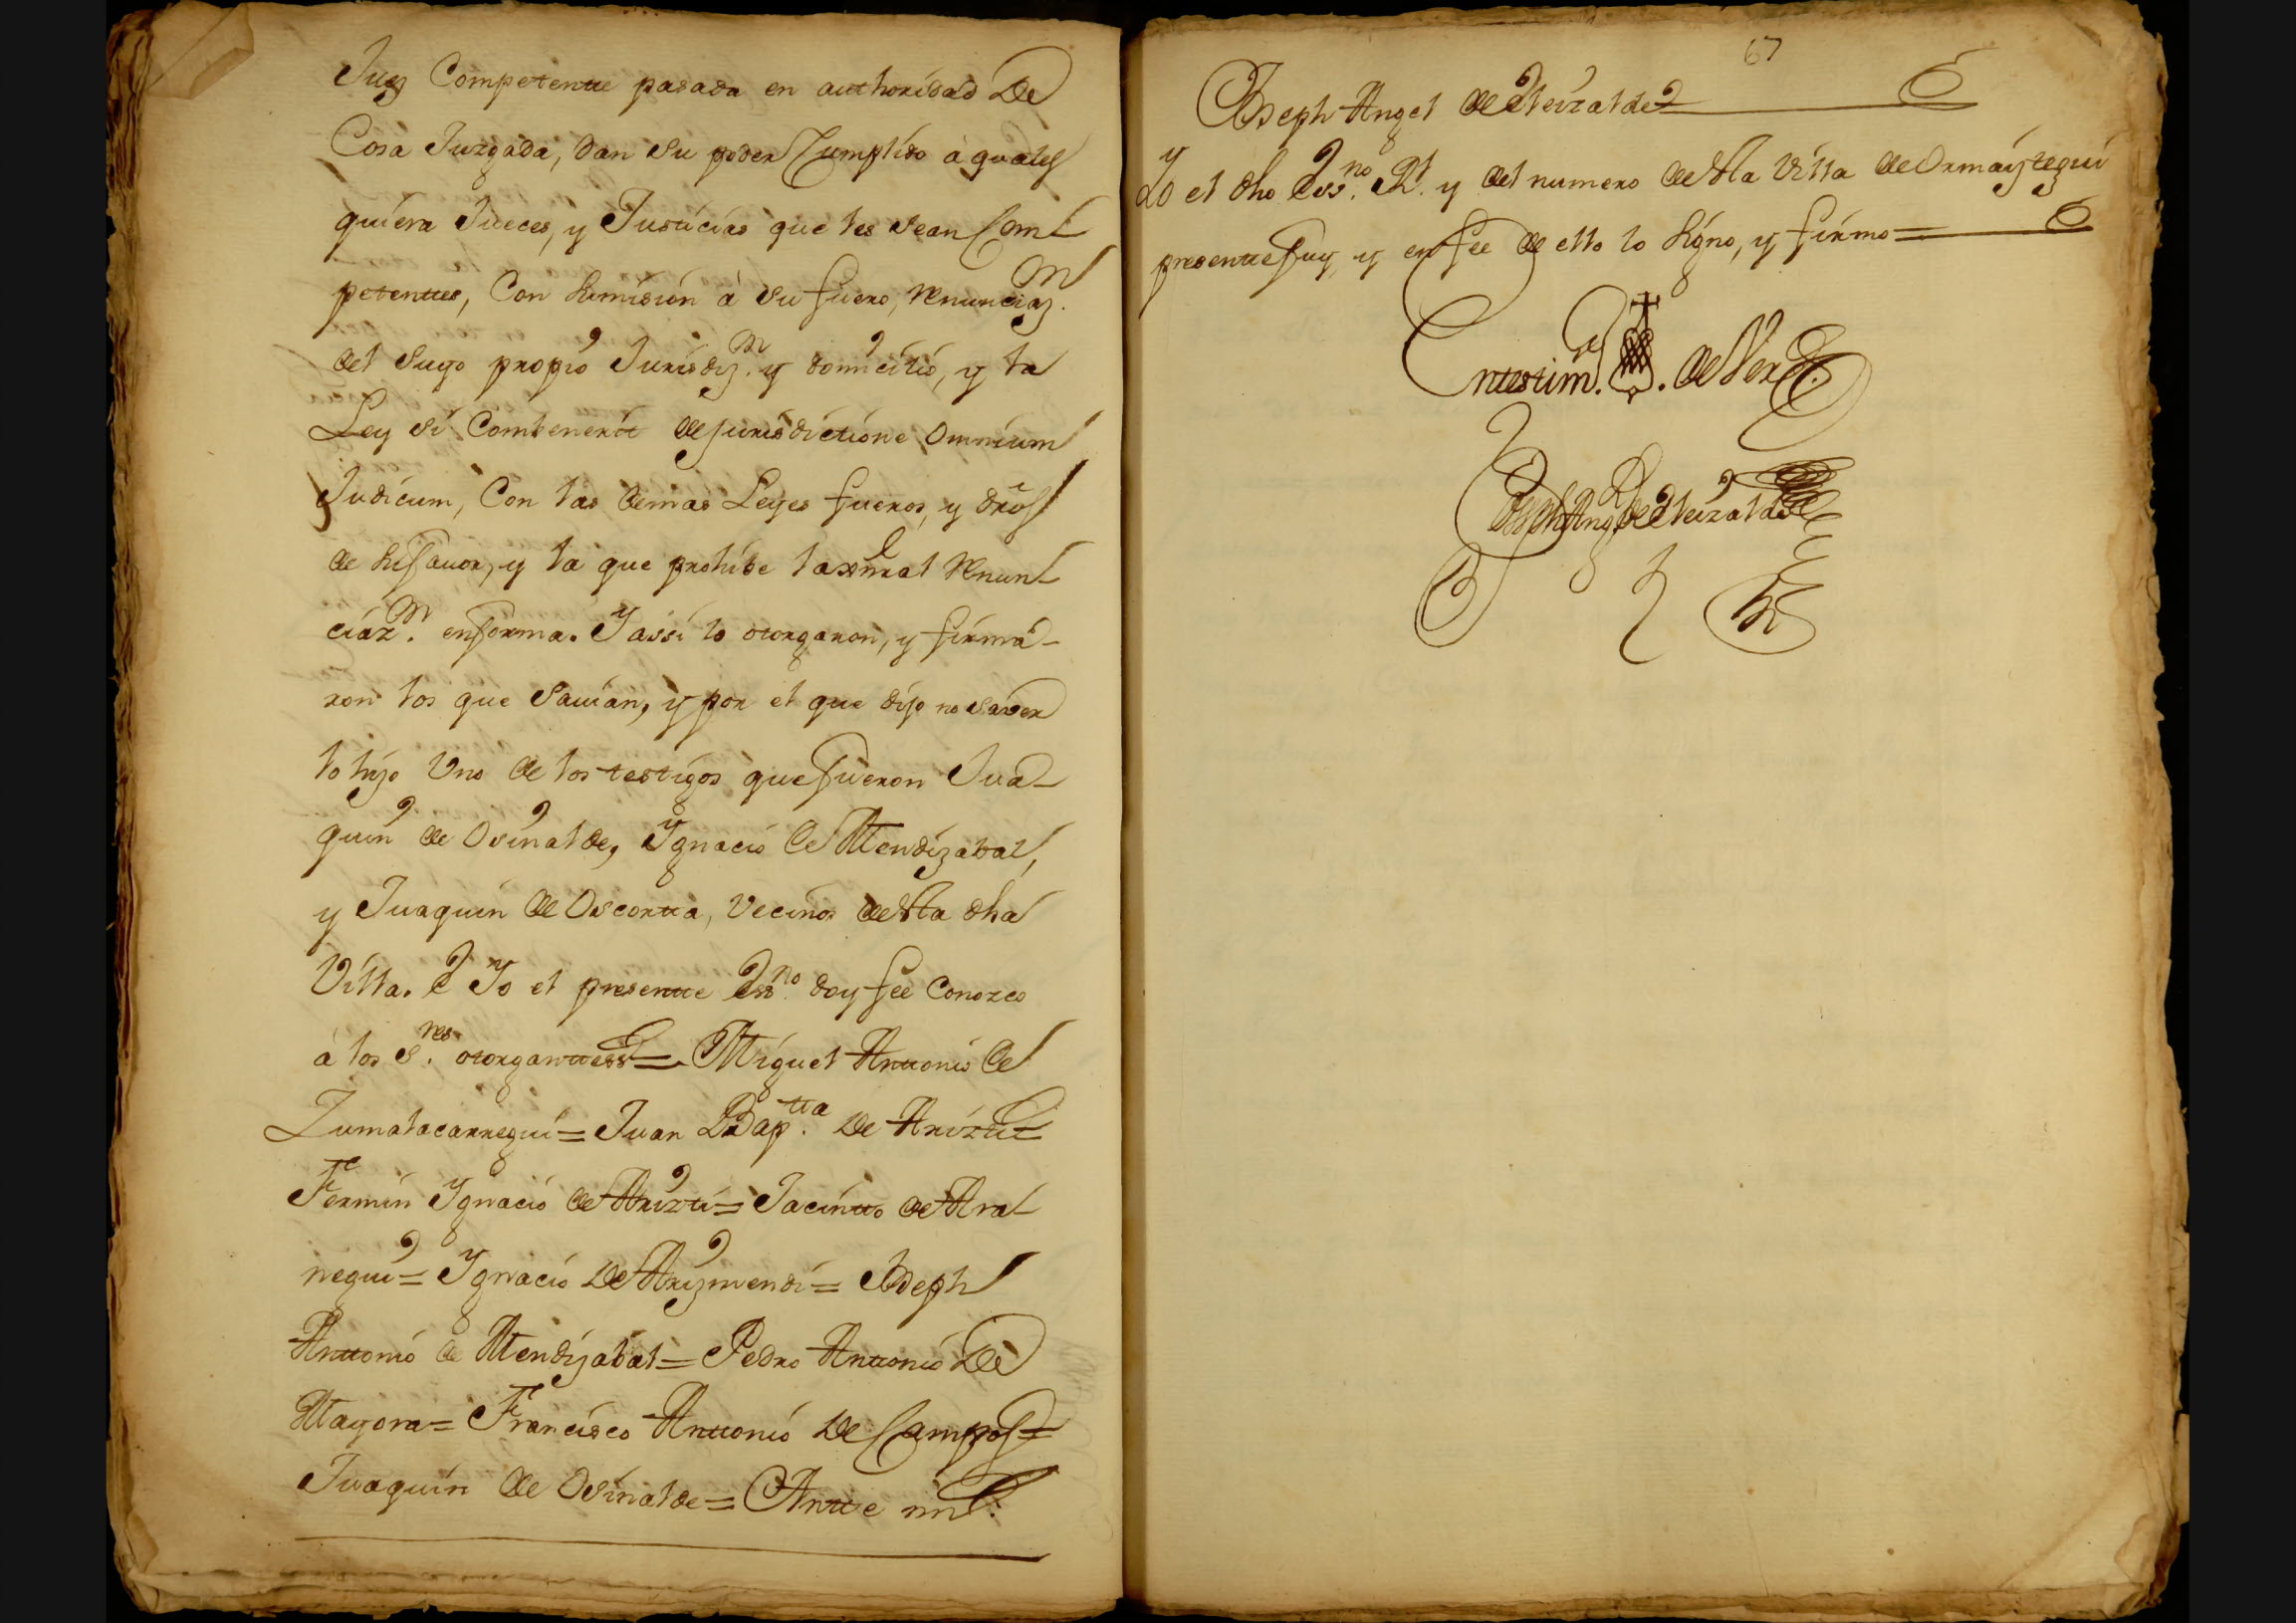 Juez Competentte pasada en authoridad De
Cosa Juzgada, dan su poder Cumplido à quales
quiera Jueces, y Justicias que les sean Com
petenttes, Con sumision à su fuero, renunciaz.on
del suyo propio Jurisdiz.on y domicilio, y la
Ley si Combenerit de jurisdictione omnium
Judicum, Con las demas Leyes fueros, y drõs
de su favor, y la que prohibe la gnral renun
ciaz.on en forma. Y assi lo otorgaron, y firma-
ron los que savian, y por el que dijo no saver
lo hizo Uno de los testigos que fueron Jua-
quin de Osinalde, Ygnacio de Mendizabal,
y Juaquin de Oscortta, Vecinos de ella dha
Villa. E Yo el presentte Ess.no doy fee Conozco
à los S.res otorganttess = Miguel Anttonio de
Zumalacarregui = Juan Bap.tta de Arizti =
Fermin Ygnacio de Arizti = Jacintto de Ara
negui = Ygnacio De Arizmendi = Joseph
Anttonio de Mendizabal = Pedro Anttonio De
Mayora = Francisco Anttonio de Campos =
Juaquin de Osinalde = Antte mi:
67
Joseph Angel de Eleizalde
Yo el dho Ess.no Rl. y del numero de ella Villa de Ormaiztegui
presentte fuy, y en fee de ello lo signo, y firmo =
En testtim.o . de Verd.
Joseph Angl de Eleizalde